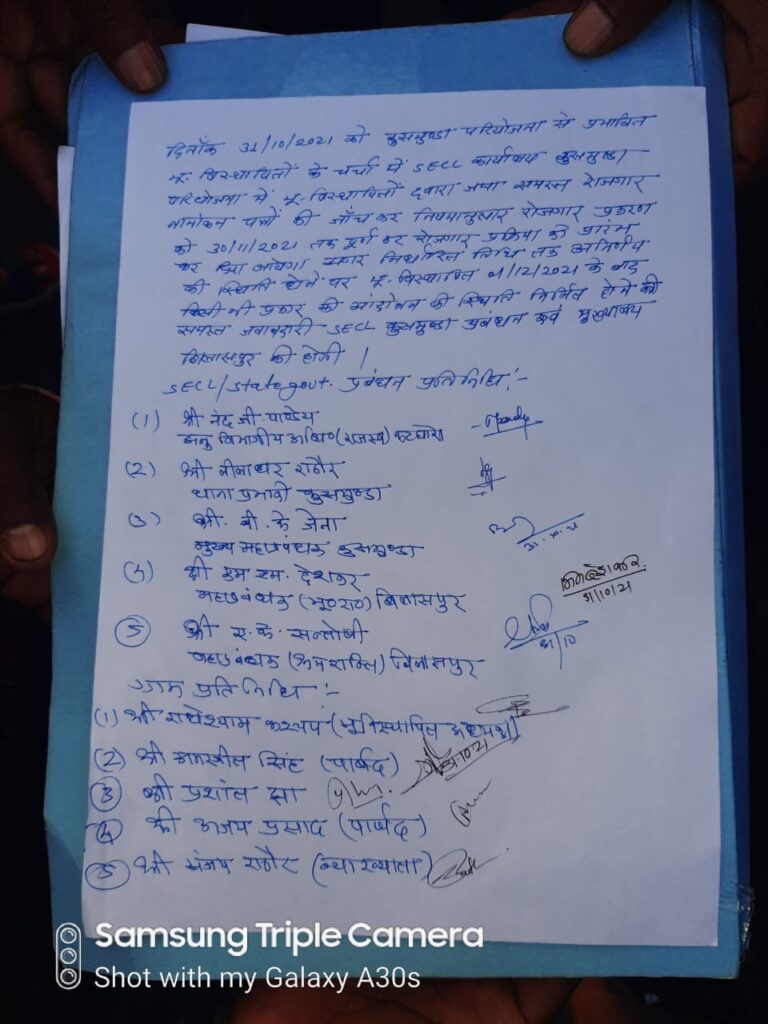 दिनाँक 31/10/2021 को कुसमुण्डा परियोजना से प्रभावित
भू-विस्थापितों के चर्चा में SECL कार्यालय कुसमुण्डा
परियोजना में भू-विस्थापितों द्वारा जमा समस्त रोजगार
नामांकन पत्रों की जाँच कर नियमानुसार रोजगार प्रकरण
को 30/11/2021 तक पूर्ण कर रोजगार प्रक्रिया को प्रारंभ
कर दिया जावेगा निर्धारित तिथि तक अनिर्णय
की स्थिति होने पर भू-विस्थापित 01/12/2021 के बाद
किसी भी प्रकार की आंदोलन की स्थिति निर्मित होने की
समस्त जवाबदारी SECL कुसमुण्डा प्रबंधन एवं मुख्यालय
बिलासपुर की होगी ।
SECL/State govt. प्रबंधन प्रतिनिधि :-
(1) श्री नंद जी पाण्डेय
अनु विभागीय अधि० (राजस्व) कटघोरा
(2) श्री लीलाधर राठौर
थाना प्रभारी कुसमुण्डा
(3) श्री. बी. के जेना
मुख्य महाप्रबंधक कुसमुण्डा
(4) श्री एम एम. देशकर
महाप्रबंधक (भू०रा०) बिलासपुर
31/10/21
(5) श्री ए. के. सन्तोषी
महाप्रबंधक (श्रमशक्ति) बिलासपुर
31/10
प्रतिनिधि :-
(1) श्री राधेश्याम कश्यप (भूविस्थापित अध्यक्ष)
(2) श्री अमरजीत सिंह (पार्षद)
31/10/21
(3) श्री प्रशांत झा
(4) श्री अजय प्रसाद (पार्षद)
(5) श्री संजय राठौर (व्याख्याता)
Samsung Triple Camera
Shot with my Galaxy A30s